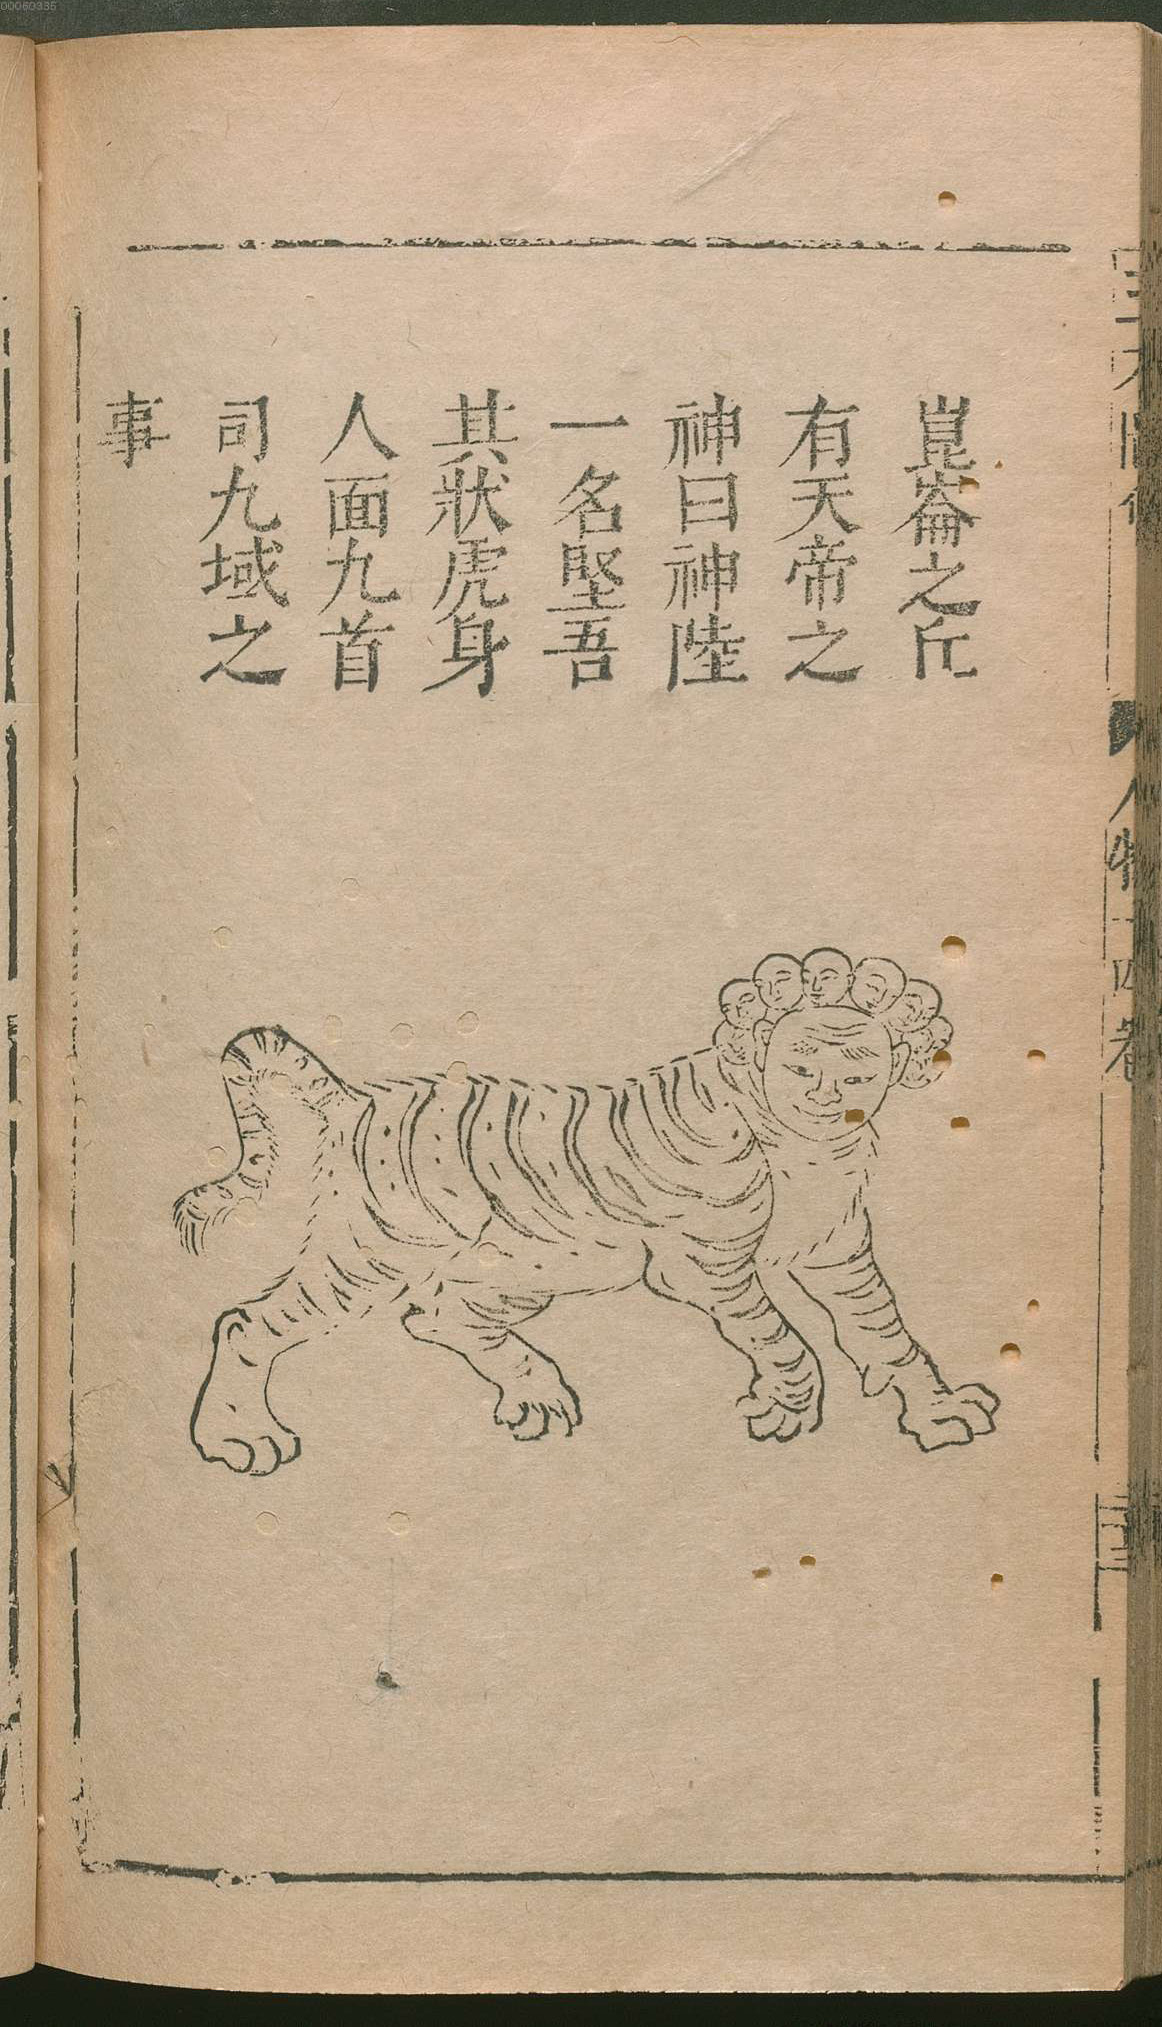 崑崙之丘
有天帝之
神曰神陸
一名堅吾
其狀虎身
人面九首
司九域之
事
人物十四卷
00060335